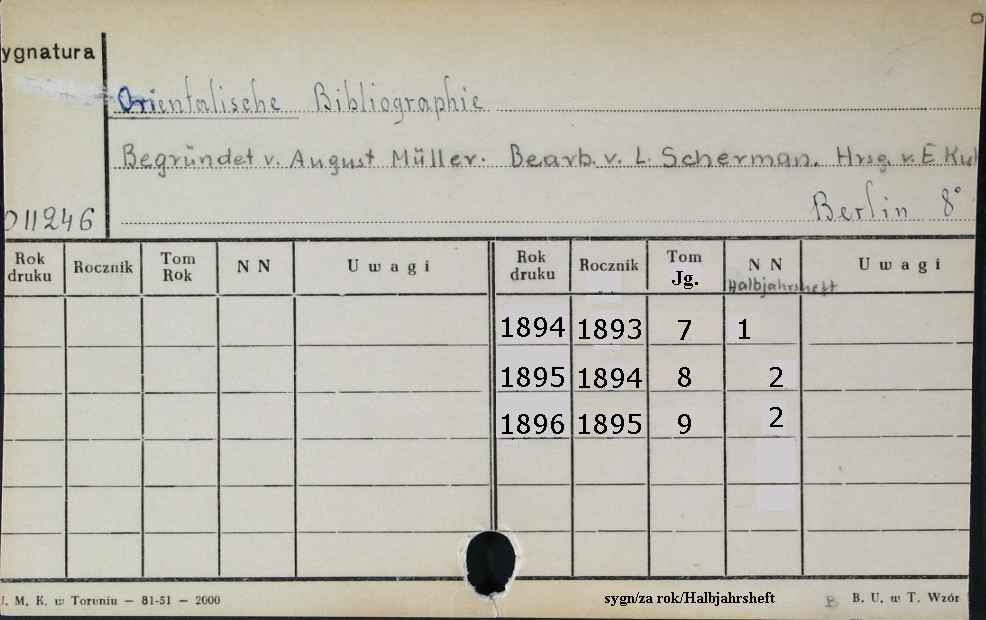 ygnatura
Orientalische Bibliographie
Begründet v. August Müller. Bearb. v. L. Scherman. Hrsg. v. E. Ku
011246 Berlin 8°
Rok druku Rocznik Tom Rok N N Uwagi Rok druku Rocznik Tom Jg. N N Halbjahrsheft Uwagi
1894 1893 7 1
1895 1894 8 2
1896 1895 9 2
J. M. K. w Toruniu — 81-51 — 2000 sygn/za rok/Halbjahrsheft B B. U. w T. Wzór